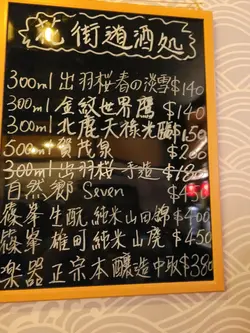 花街道酒処
300ml 出羽桜春の淡雪 $140
300ml 金紋世界鷹 $140
300ml 北鹿大吟米 $150
500ml 賀茂泉 $200
300ml 出羽桜手造 $180
自然郷 Seven $450
篠峯生酛純米山田錦 $400
篠峯雄町純米山廃 $450
楽器正宗本醸造中取 $380